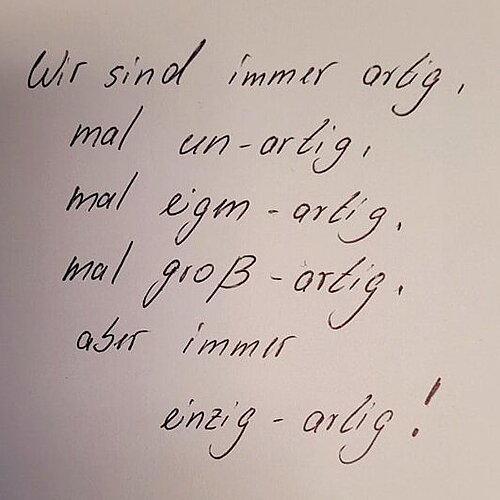 Wir sind immer artig,
mal un-artig,
mal eigen-artig,
mal groß-artig,
aber immer
einzig-artig!